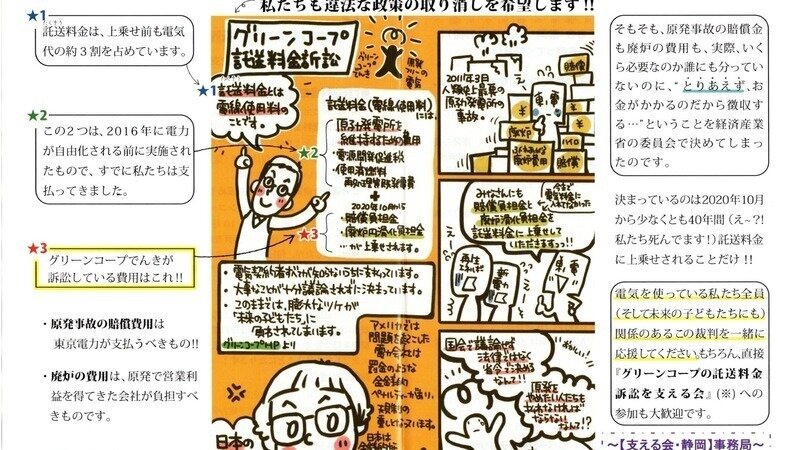 私たちも違法な政策の取り消しを希望します!!
★1
託送料金は、上乗せ前も電気
代の約3割を占めています。
★2
この2つは、2016年に電力
が自由化される前に実施され
たもので、すでに私たちは支
払ってきました。
★3
グリーンコープでんきが
訴訟している費用はこれ!!
・原発事故の賠償費用は
東京電力が支払うべきもの!!
・廃炉の費用は、原発で営業利
益を得てきた会社が負担すべ
きものです。
グリーンコープ
託送料金訴訟
グリーン
コープ
でんき
原発
フリーの
電気
★1
託送料金とは
電線使用料の
ことです。
託送料金(電線使用料)
には、
★2
・原子力発電所を
維持するための費用
・電源開発促進税
・使用済燃料
再処理等既発電費
+
2020年10月から
★3
・賠償負担金
・廃炉円滑化負担金
…が上乗せされます。
・電気契約者が知らないうちに支払っています。
・大事なことが十分議論されずに決まっています。
・このままでは、膨大なツケが
「未来の子どもたち」に
回されてしまいます。
グリーンコープHPより
アメリカでは
問題を起こした
電力会社には
罰金のような
金銭的
ペナルティーが
規制の
日本は
日本の
2011年3月
人類史上最悪の
原子力発電所の
事故。
賠償
東電
廃炉
賠償
みなさんにも
賠償負担金と
廃炉円滑化負担金を
託送料金に上乗せして
いただきますっ!!
今まで
電気料金に
再生
エネルギー
新電力
東電
国会で議論せず
法律ではなく
省令で決める
なんて!!
原発を
やめたい人たちも
払わなければ
ならない
なんて!?
そもそも、原発事故の賠償金
も廃炉の費用も、実際、いく
ら必要なのか誰にも分ってい
ないのに、“とりあえず、お
金がかかるのだから徴収す
る…”ということを経済産業
省の委員会で決めてしまっ
たのです。
決まっているのは2020年10月
から少なくとも40年間(え~?!
私たち死んでます!)託送料金
に上乗せされることだけ!!
電気を使っている私たち全員
(そして未来の子どもたちにも)
関係のあるこの裁判を一緒に
応援してください。もちろん、直接
『グリーンコープの託送料金
訴訟を支える会』(※)への
参加も大歓迎です。
~【支える会・静岡】事務局~